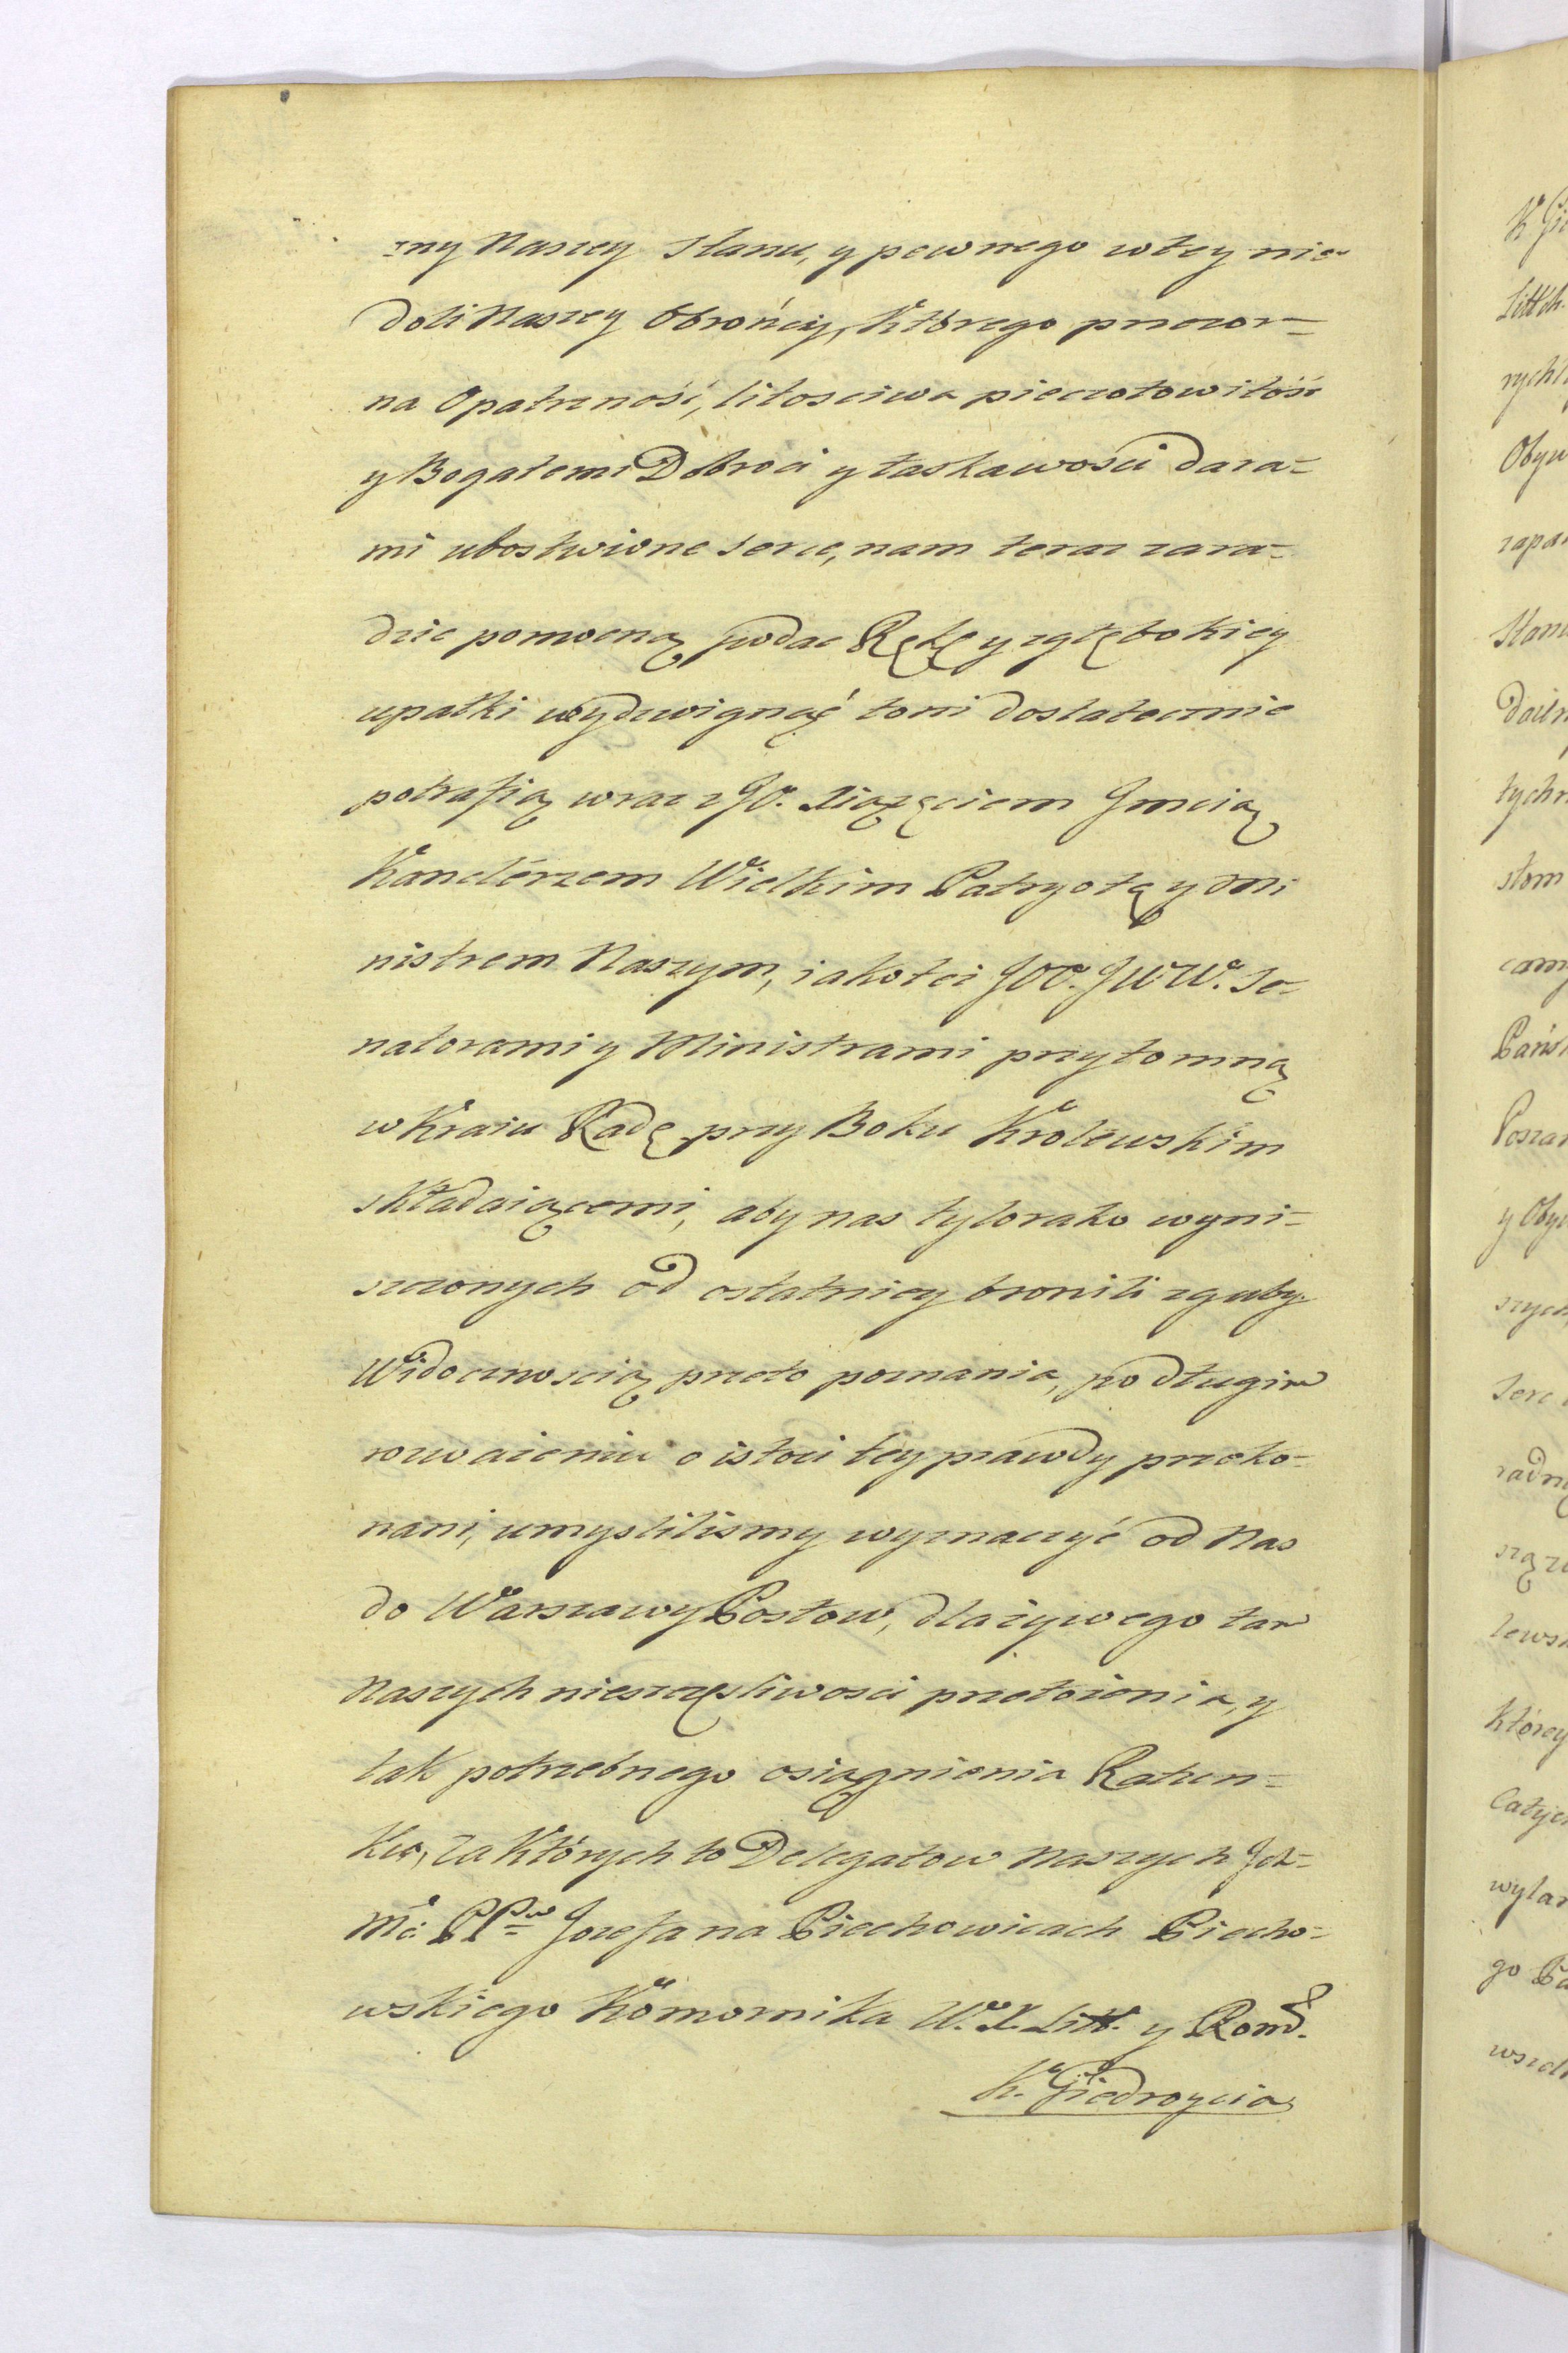 zny Naszey stanu, y pewnego wtey nie-
doli Naszey Obrońcy, Którego przezor=
na Opatrzność, litosciwa pieczołowitość
y Bogatemi Dobroci y łaskawości dara=
mi ubostwione serce, nam teraz zara=
dzic pomocną podac Rękę y zgłębokiey
upałki wydzwignąć toni dostatecznie
potrafią wraz z JO. Xiążęciem Jmcią
Kanclerzem Wielkim Patryotą y Mi
nistrem Naszym, iakoteż JOO. JWW. Se=
natorami y Ministrami przytomną
w Kraiu Radę przy Boku Krolewskim
składaiącemi, aby nas tylorako wyni=
szczonych od ostatniey bronili zguby.
Widocznoscią przeto poznania, po długim
rozważeniu o istoci tey prawdy przeko=
nani, umyslilismy wyznaczyć od Nas
do Warszawy Posłow, dla żywego tam
Naszych nieszczęsliwosci przełożenia, y
tak potrzebnego osiągnienia Ratun=
Ku, Za Których to Delegatow Naszych Jch=
Mć PPw Jozefa na Piechowicach Piecho=
wskiego Komornika W. X. Litt. y Rom̃d.
K. Giedroycia
K Gie
Litt ch.
rychł
Obyw
zapa
stan
tychm
słom
Pańs
Poszan
y Oby
szych
serc
radn
lews
Którey
Całyc
wylan
go Pa
wszel